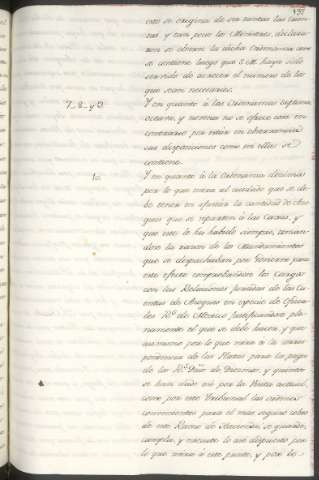 137
esto se origina de ser tantas las Cuen-
tas, y tan pocos los Ministros, declara-
ran se observe la dicha Ordenanza como
se contiene luego que S. M. haya sido
servido de acrecer el numero de los
que sean necesarios.
7, 8, y 9
Y en quanto á las Ordenanzas septima,
octava, y novena no se ofrece cosa en
contrario por estar en observancia
sus disposiciones como en ellas se
contiene.
10
Y en quanto á la Ordenanza decima
por lo que mira al cuidado que se de-
be tener en ajustar la cantidad de Azo-
gues que se reparten á las Caxas, y
que este lo ha habido siempre, toman-
dose la razon de los Mandamientos
que se despachaban por Govierno para
este efecto comprobandose los Cargos
con las Relaciones juradas de las Cu-
entas de Azogues en especie de Oficia-
les R.s de Mexico justificandose ple-
namente el que se debe hacer, y que
asimismo por lo que mira á la corres-
pondencia de las Platas para la paga
de los R.s Dros de Diezmos, y quintos
se han dado así por la Visita actual,
como por este Tribunal las ordenes
convenientes para el mas seguro cobro
de este Ramo de Hacienda, se guarde,
cumpla, y execute lo así dispuesto por
lo que mira á este punto, y por lo